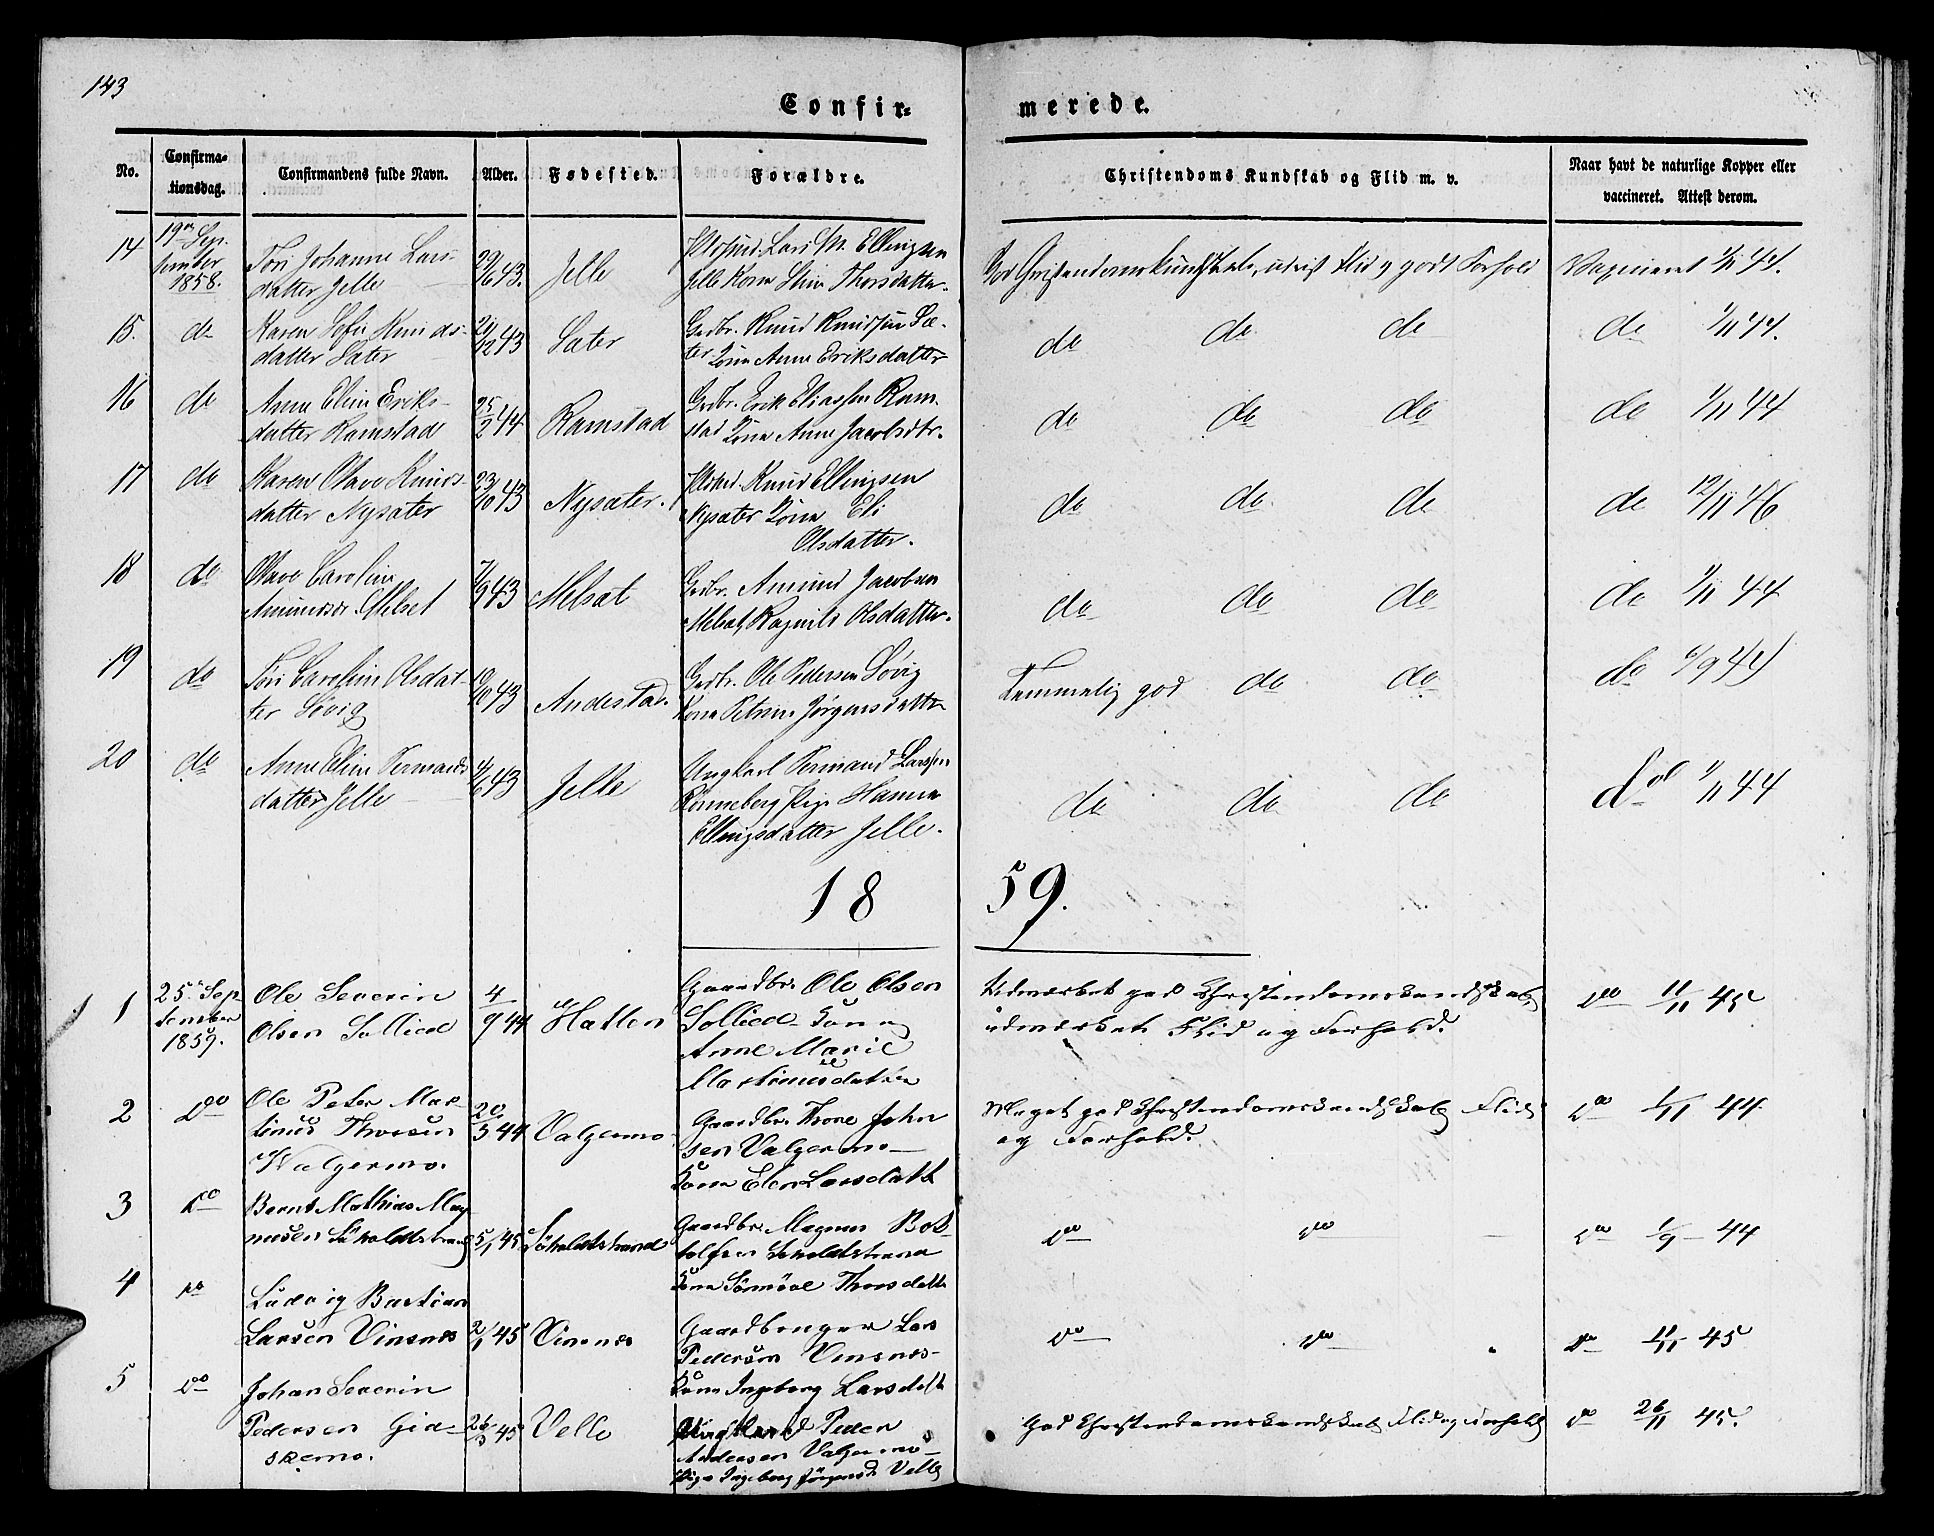 143
Confir=
merede.
No.
Confirma=
tionsdag.
Confirmandens fulde Navn.
Alder.
Fødested.
Forældre.
Christendoms Kundskab og Flid m. v.
Naar havt de naturlige Kopper eller
vaccineret. Attest derom.
14
19de Sep-
tember
1858.
Johanne Lars-
datter Jelle
29/6 43.
Jelle
Lars M. Ellingsen
Jelle Kone Thorsdatter.
God Christendomskundskab, udvist Flid og godt Forhold
Vaccineret 1/11 44.
15.
do
Karen Knuds-
datter Sæter
21/12 43
Sæter
Grdbr. Knud Knudsen Sæ-
ter Kone Anne Eriksdatter
do do do
do 1/11 44.
16
do
Anne Eline Eriks-
datter Ramstad
25/2 44
Ramstad
Grdbr. Erik Eliassen Ram-
stad Kone Anne Jacobsdtr.
do do do
do 1/11 44
17
do
Karen Olave Knuds-
datter Nysæter
23/10 43
Nysæter.
Knud Ellingsen
Nysæter Kone Eli
Olsdatter.
do do. do
do 12/11 46
18
do
Olave Caroline
Amundsdr. Melset
7/9 43
Melsæt
Grdbr. Amund Jacobsen
Melsæt, Ragnild Olsdatter.
do do do
do 1/11 44
19
do
Caroline Olsdat-
ter Søvig
10/10 43
Andestad.
Grdbr. Ole Pedersen Søvig
Kone Petrine Jørgensdatter
Temmelig god do do
do 6/9 44
20
do
Anne Eline Permands
datter Jelle
4/6 43
Jelle
Ungkarl Permand Larssen
Rønneberg Pige Hanna
Ellingsdatter Jelle.
do do do
do 1/11 44
18 59.
1
25de Sep
tember
1859.
Ole Severin
Olsen Sollied
4/9 44
Hatlen
Gaardbr. Ole Olsen
Sollied Kone
Anne Marie
Martinusdatter
Udmærket god Christendomskundskab,
udmærket Flid og Forhold.
do 11/11 45
2
do
Ole Peter Mar-
tinus Thoresen
Walgermo.
20/3 44
Valgermo
Gaardbr. Thore John
sen Valgermo
Kone Elen Larsdatt
Meget god Christendomskundskab, Flid
og Forhold.
do 1/11 44.
3
do
Bernt Mathias Mag
nusen Søholdtstrand
5/1 45
Søholdtstrand
Gaardbr. Magnus Bot-
tolfsen Søholdtstrand
Kone Thorsdatt
do do
do 1/9 - 44
4
do
Ludvig Bastian
Larsen Vinsnes
2/1 45
Vinsnes
Gaardbruger Lars
Pedersen Vinsnes
Kone Ingeborg Larsdatt
do do
do 11/11 - 45
5
do
Johan Severin
Pedersen Gid-
skemo.
26/3 45
Velle
Ungkarl Peder
Andersen Valgermo
Pige Ingeborg Jørgensd. Velle
God Christendomskundskab, Flid og Forhold
do 26/11 45.